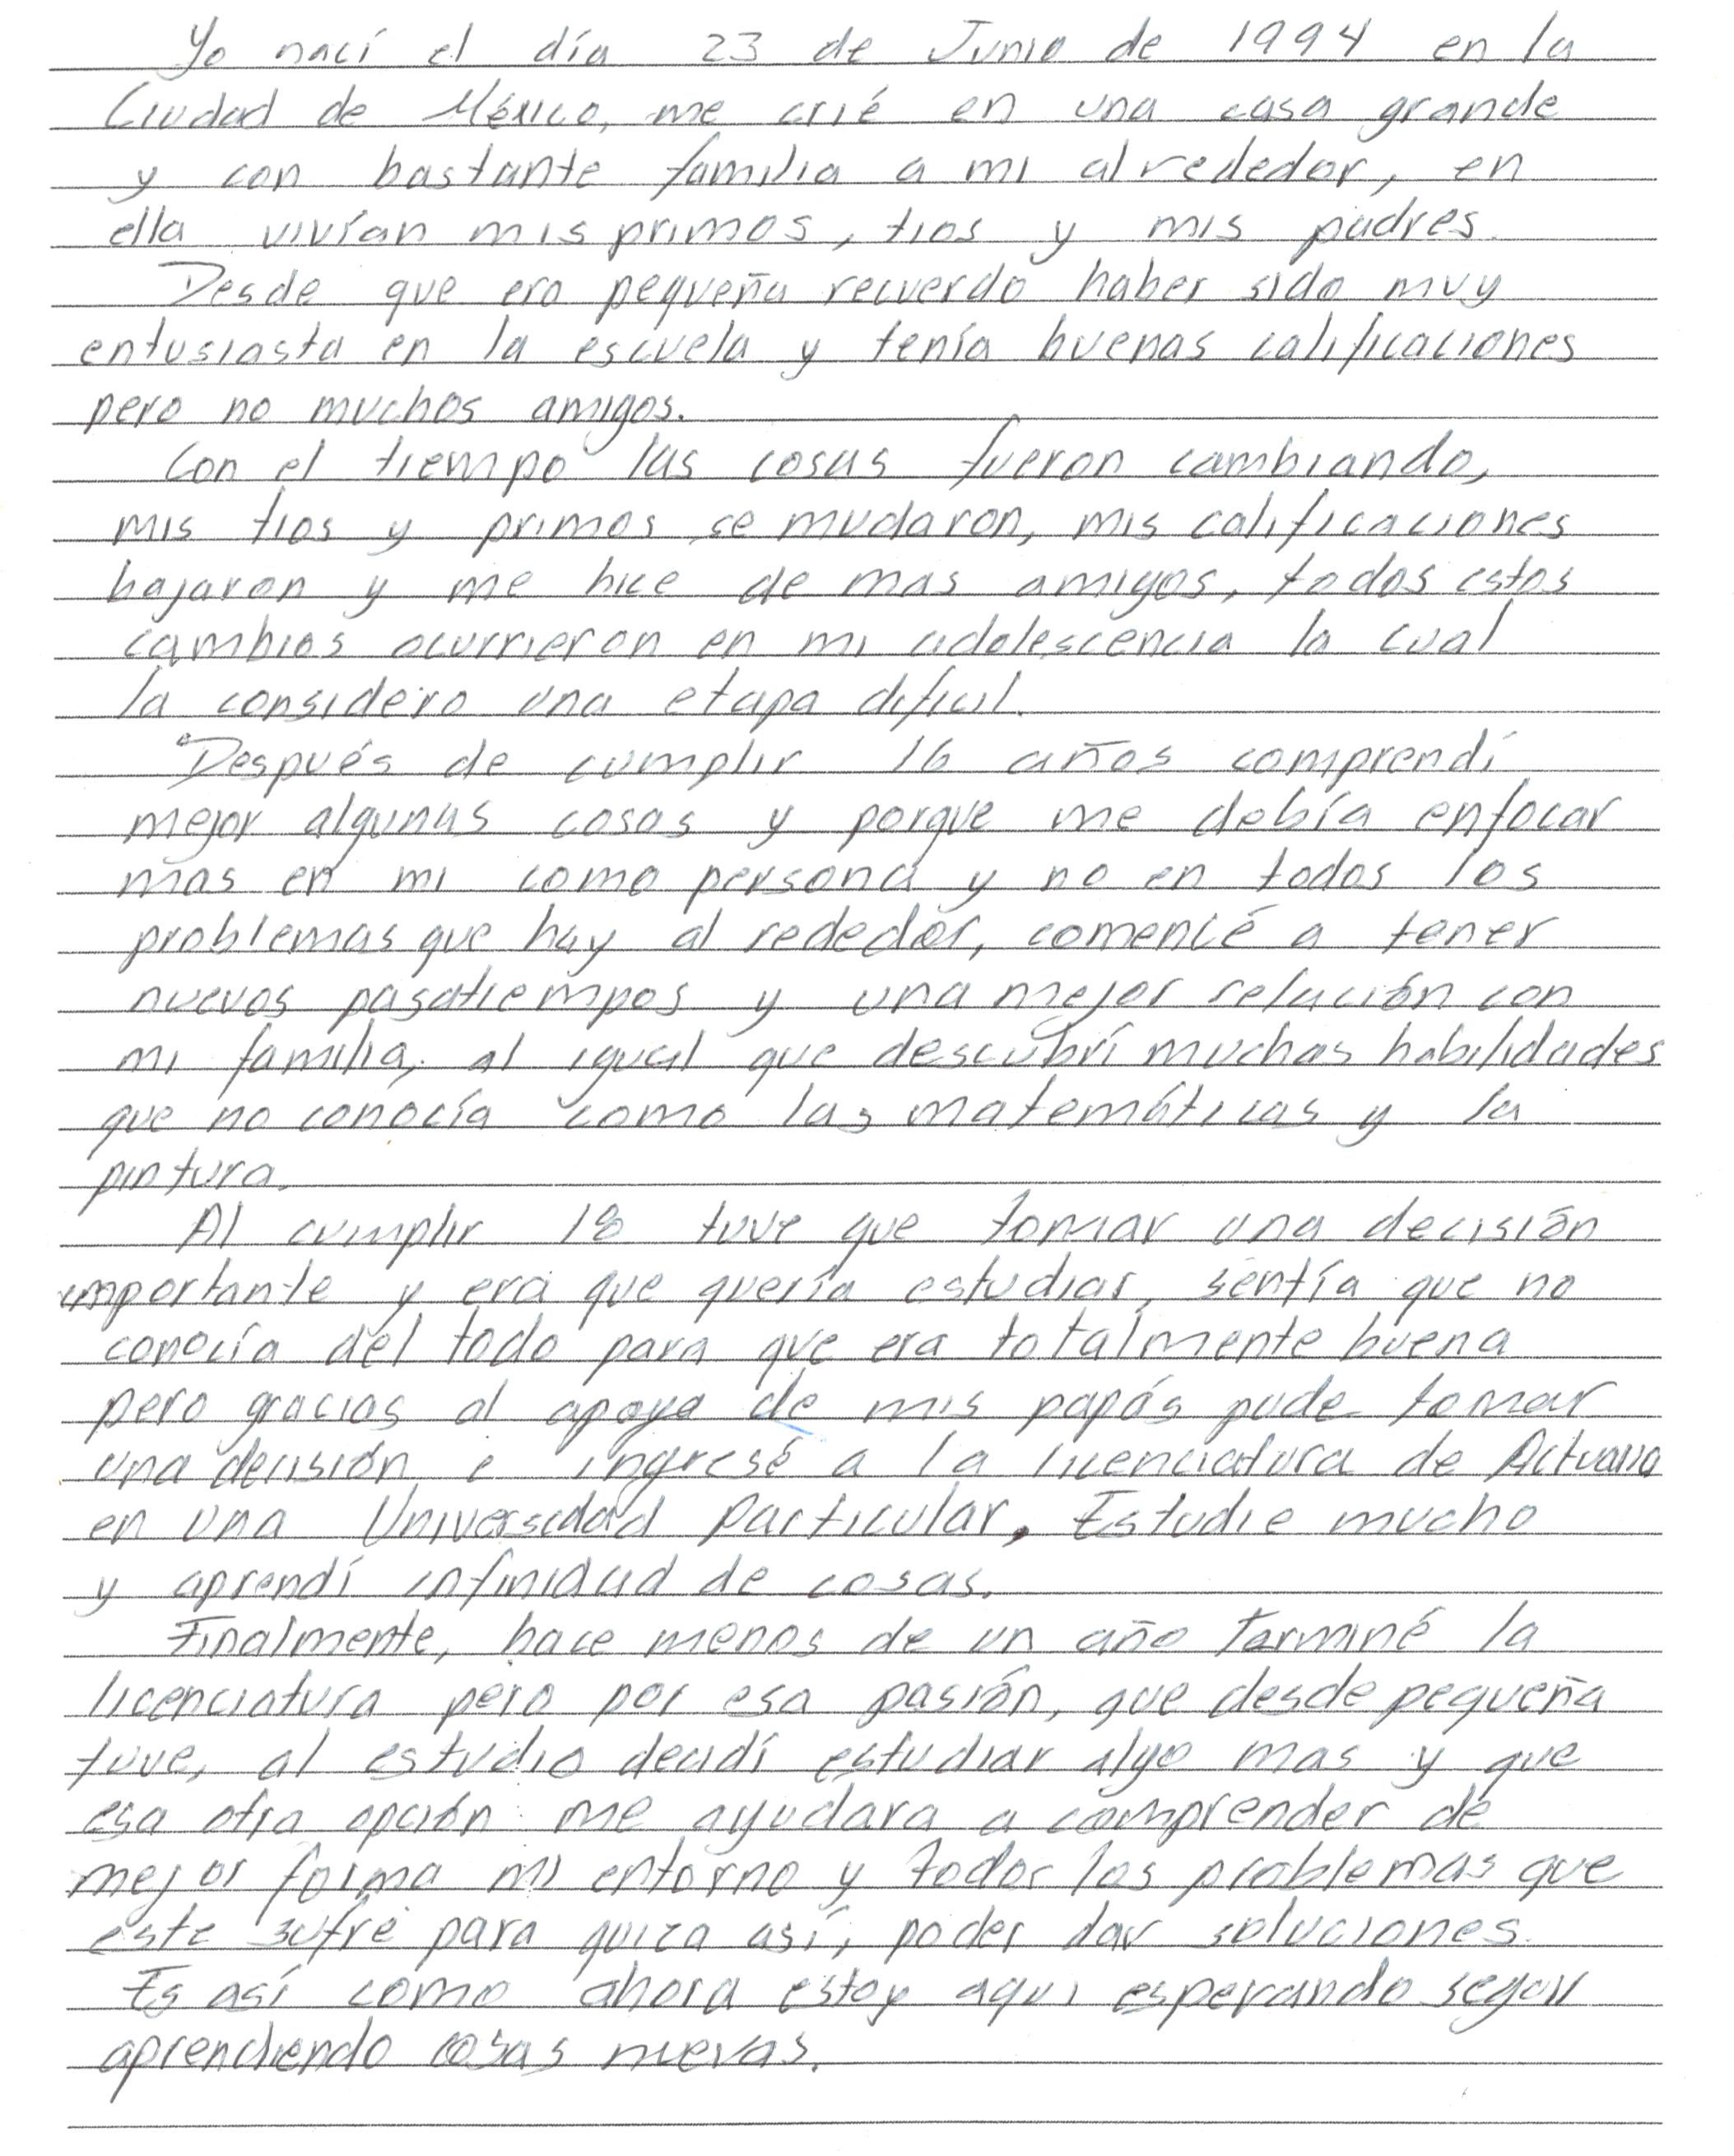 Yo nací el día 23 de Junio de 1994 en la
Ciudad de México, me crié en una casa grande
y con bastante familia a mi alrededor, en
ella vivían mis primos, tios y mis padres.
Desde que era pequeña recuerdo haber sido muy
entusiasta en la escuela y tenía buenas calificaciones
pero no muchos amigos.
Con el tiempo las cosas fueron cambiando,
mis tios y primos se mudaron, mis calificaciones
bajaron y me hice de mas amigos, todos estos
cambios ocurrieron en mi adolescencia la cual
la considero una etapa dificil.
Después de cumplir 16 años comprendí
mejor algunas cosas y porque me debía enfocar
mas en mi como persona y no en todos los
problemas que hay al rededor, comencé a tener
nuevos pasatiempos y una mejor relación con
mi familia, al igual que descubrí muchas habilidades
que no conocía como las matemáticas y la
pintura.
Al cumplir 18 tuve que tomar una decisión
importante y era que quería estudiar, sentía que no
conocía del todo para que era totalmente buena
pero gracias al apoyo de mis papás pude tomar
una decisión e ingresé a la licenciatura de Actuaria
en una Universidad Particular, Estudie mucho
y aprendí infinidad de cosas.
Finalmente, hace menos de un año terminé la
licenciatura pero por esa pasión, que desde pequeña
tuve, al estudio decidí estudiar algo mas y que
esa otra opción me ayudara a comprender de
mejor forma mi entorno y todos los problemas que
este sufre para quiza así, poder dar soluciones.
Es así como ahora estoy aqui esperando seguir
aprendiendo cosas nuevas.